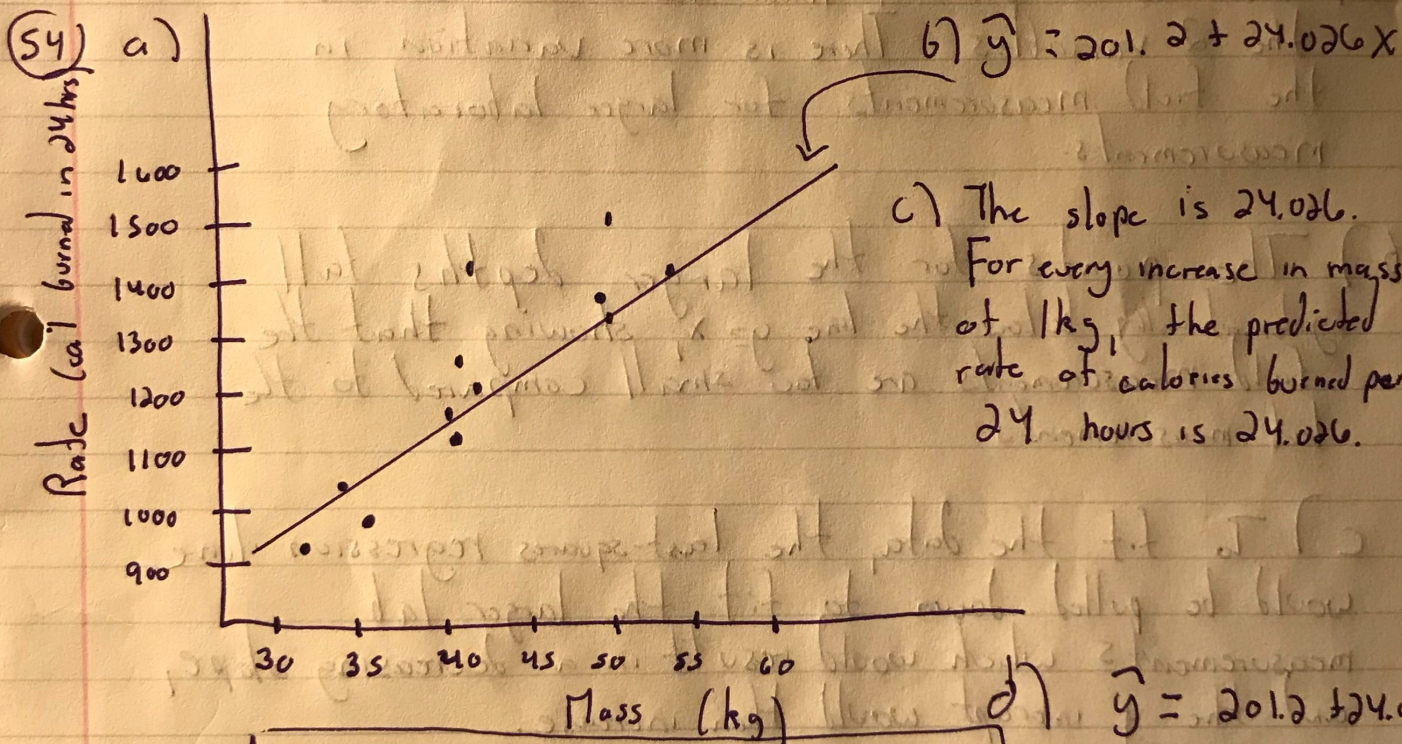 54 a)
b) ŷ = 201.2 + 24.026x
Rate (cal burned in 24 hrs)
1600
1500
1400
1300
1200
1100
1000
900
30 35 40 45 50 55 60
Mass (kg)
c) The slope is 24.026.
For every increase in mass
of 1kg, the predicted
rate of calories burned per
24 hours is 24.026.
d) ŷ = 201.2 + 24.0